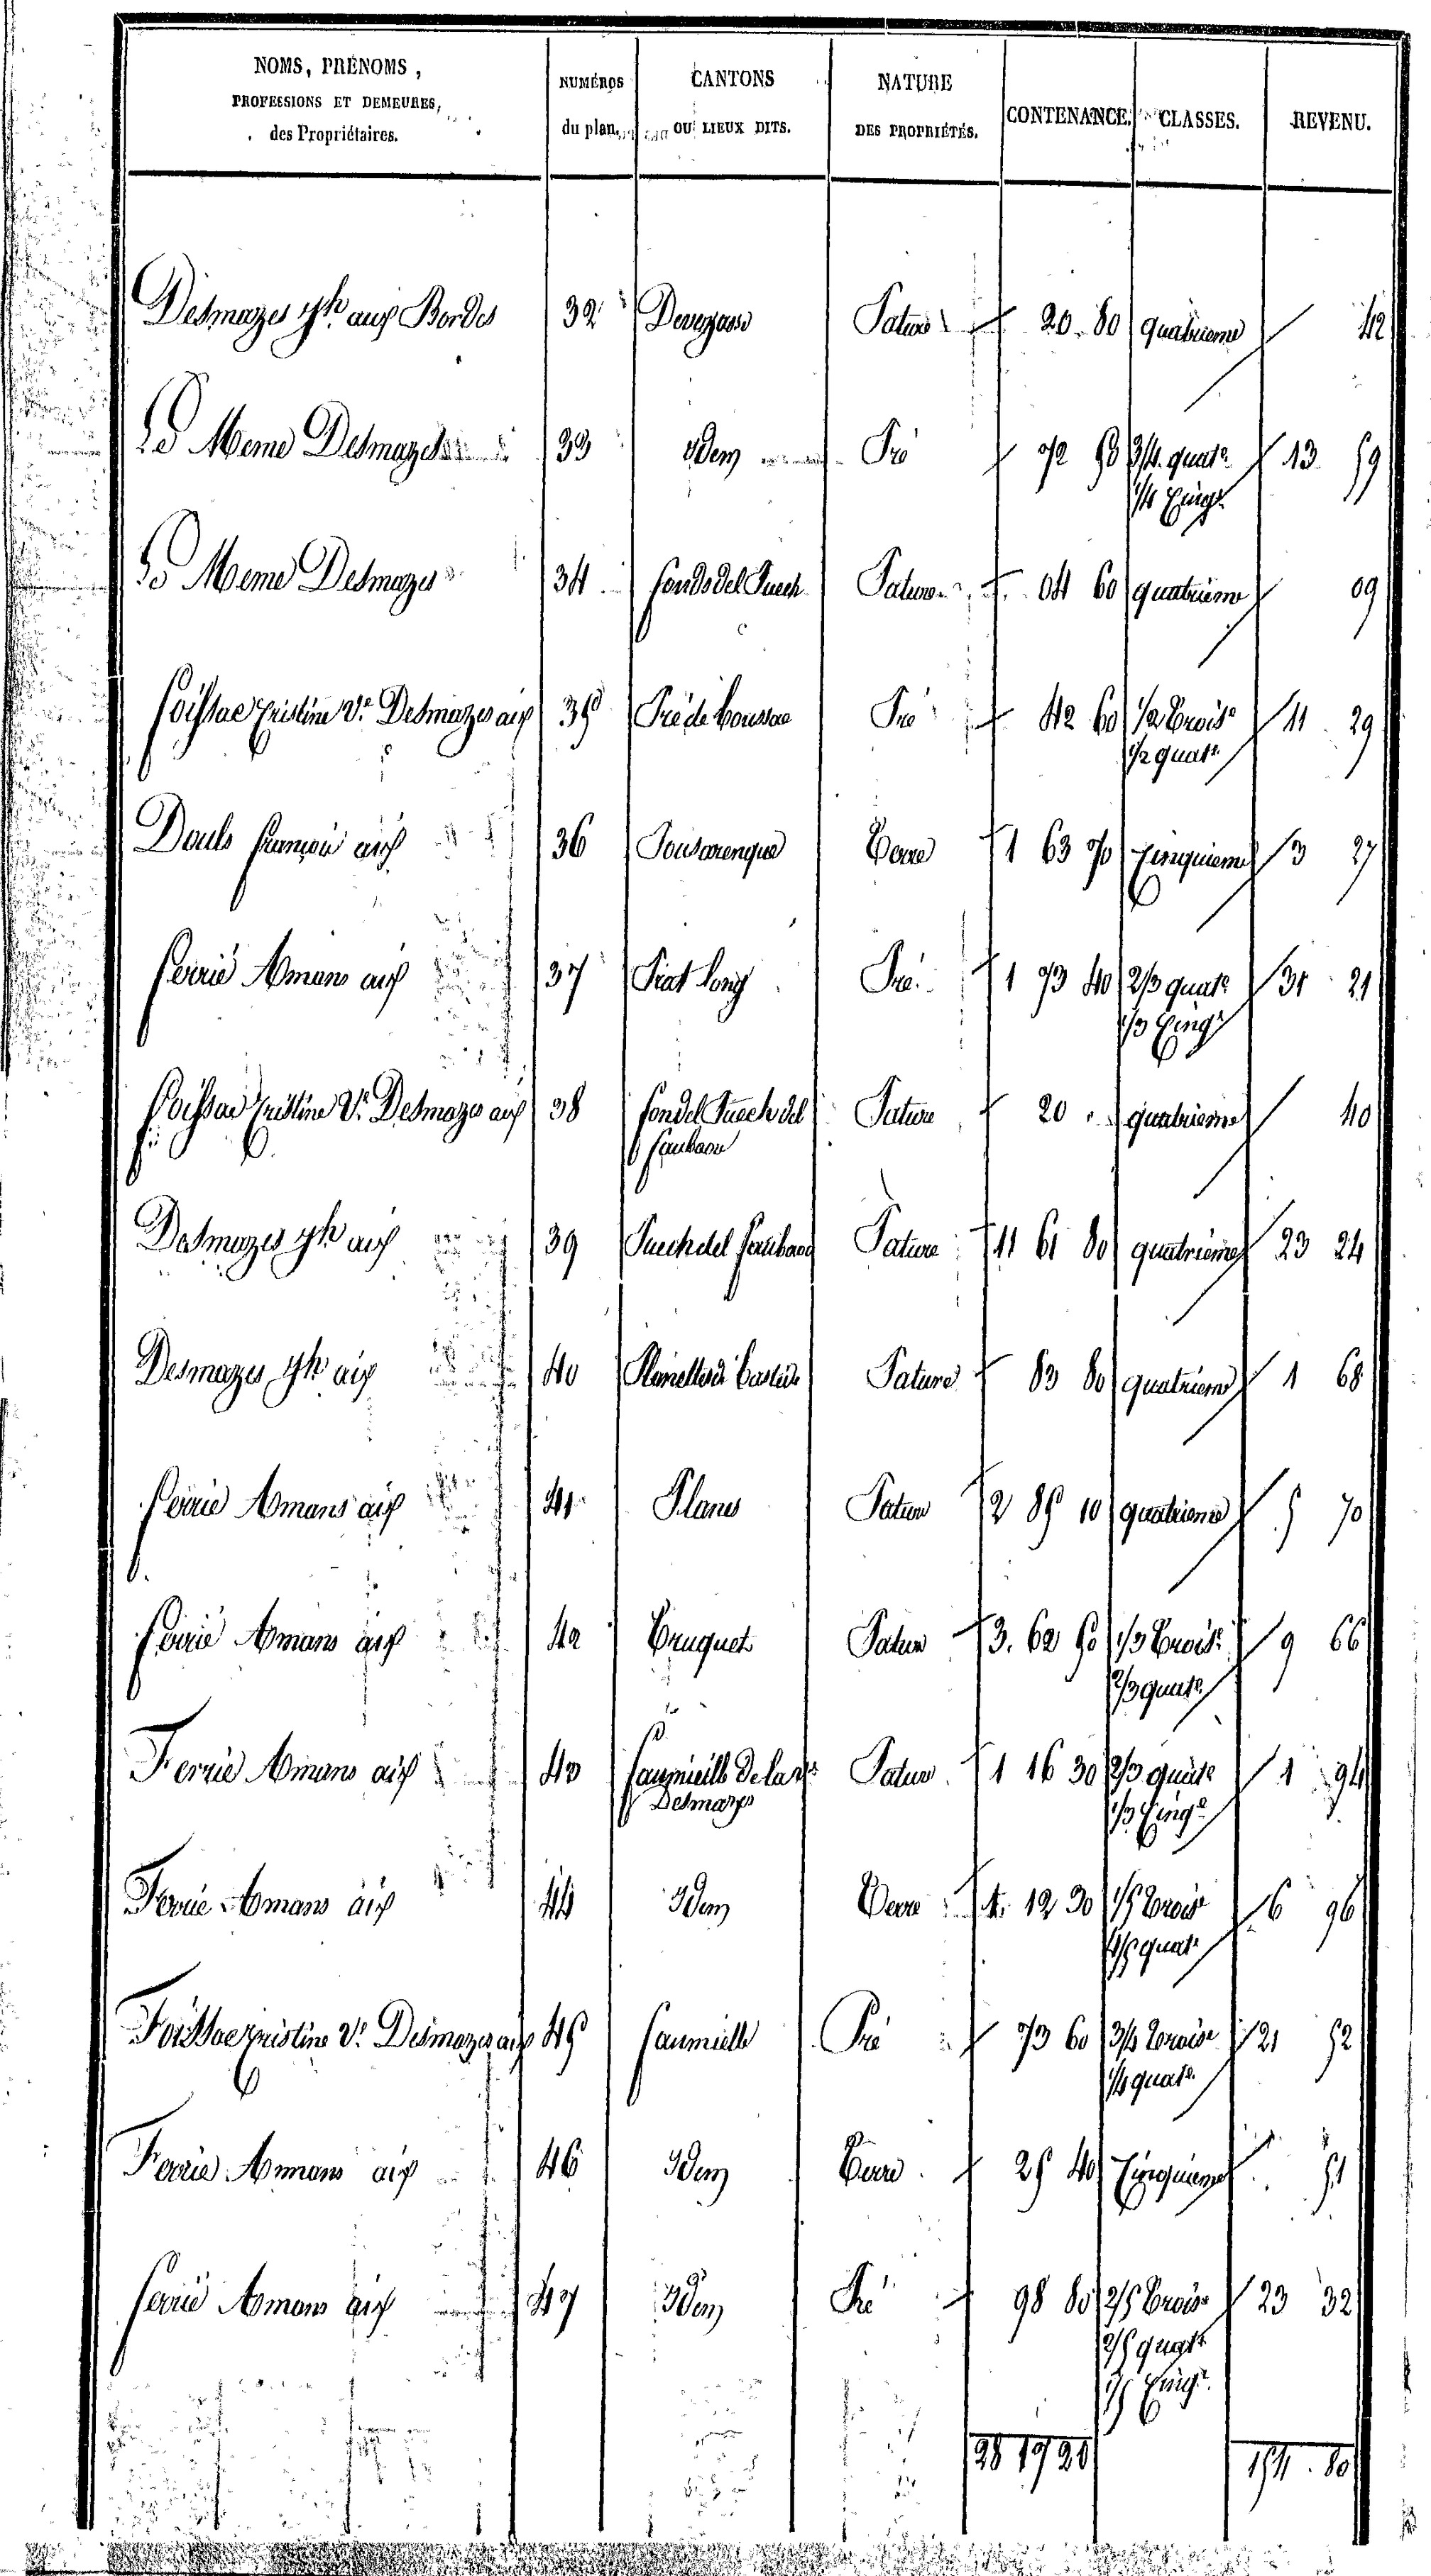 NOMS, PRÉNOMS,
PROFESSIONS ET DEMEURES,
des Propriétaires.
NUMÉROS
du plan.
CANTONS
OU LIEUX DITS.
NATURE
DES PROPRIÉTÉS.
CONTENANCE.
CLASSES.
REVENU.
Desmazes jh aux Bordes 32 Pature 20 80 quatrieme 42
Le Meme Desmazes 33 Idem Pré 72 50 3/4 quat.e 13 59
1/4 Cinq.e
Le Meme Desmazes 34 fonds del Puech Pature 04 60 quatrieme 09
foissac Cristine V.e Desmazes aux 35 Pré de Pré 42 60 1/2 trois.e 11 29
1/2 quat.e
Douls françois aux 36 Terre 1 63 70 Cinquieme 3 27
ferrié Amans aux 37 Prat long Pré 1 73 40 2/3 quat.e 31 21
1/3 Cinq.e
foissac Cristine V.e Desmazes aux 38 fon del Puech del Pature 20 quatrieme 40
Desmazes jh aux 39 Puech del Pature 11 61 80 quatrieme 23 24
Desmazes jh aux 40 Pature 83 80 quatrieme 1 68
ferrié Amans aux 41 Planes Pature 2 85 10 quatrieme 5 70
ferrié Amans aux 42 Truquet Pature 3 62 50 1/3 trois.e 9 66
2/3 quat.e
Ferrié Amans aux 43 de la V.e Pature 1 16 30 2/3 quat.e 1 94
Desmazes 1/3 Cinq.e
Ferrié Amans aux 44 Idem Terre 1 12 30 1/5 trois.e 6 96
4/5 quat.e
Foissac Cristine V.e Desmazes aux 45 faumielle Pré 73 60 3/4 trois.e 21 52
1/4 quat.e
Ferrié Amans aux 46 Idem Terre 25 40 Cinquieme 51
ferrié Amans aux 47 Idem Pré 98 80 2/5 trois.e 23 32
2/5 quat.e
1/5 Cinq.e
28 19 20 154 80